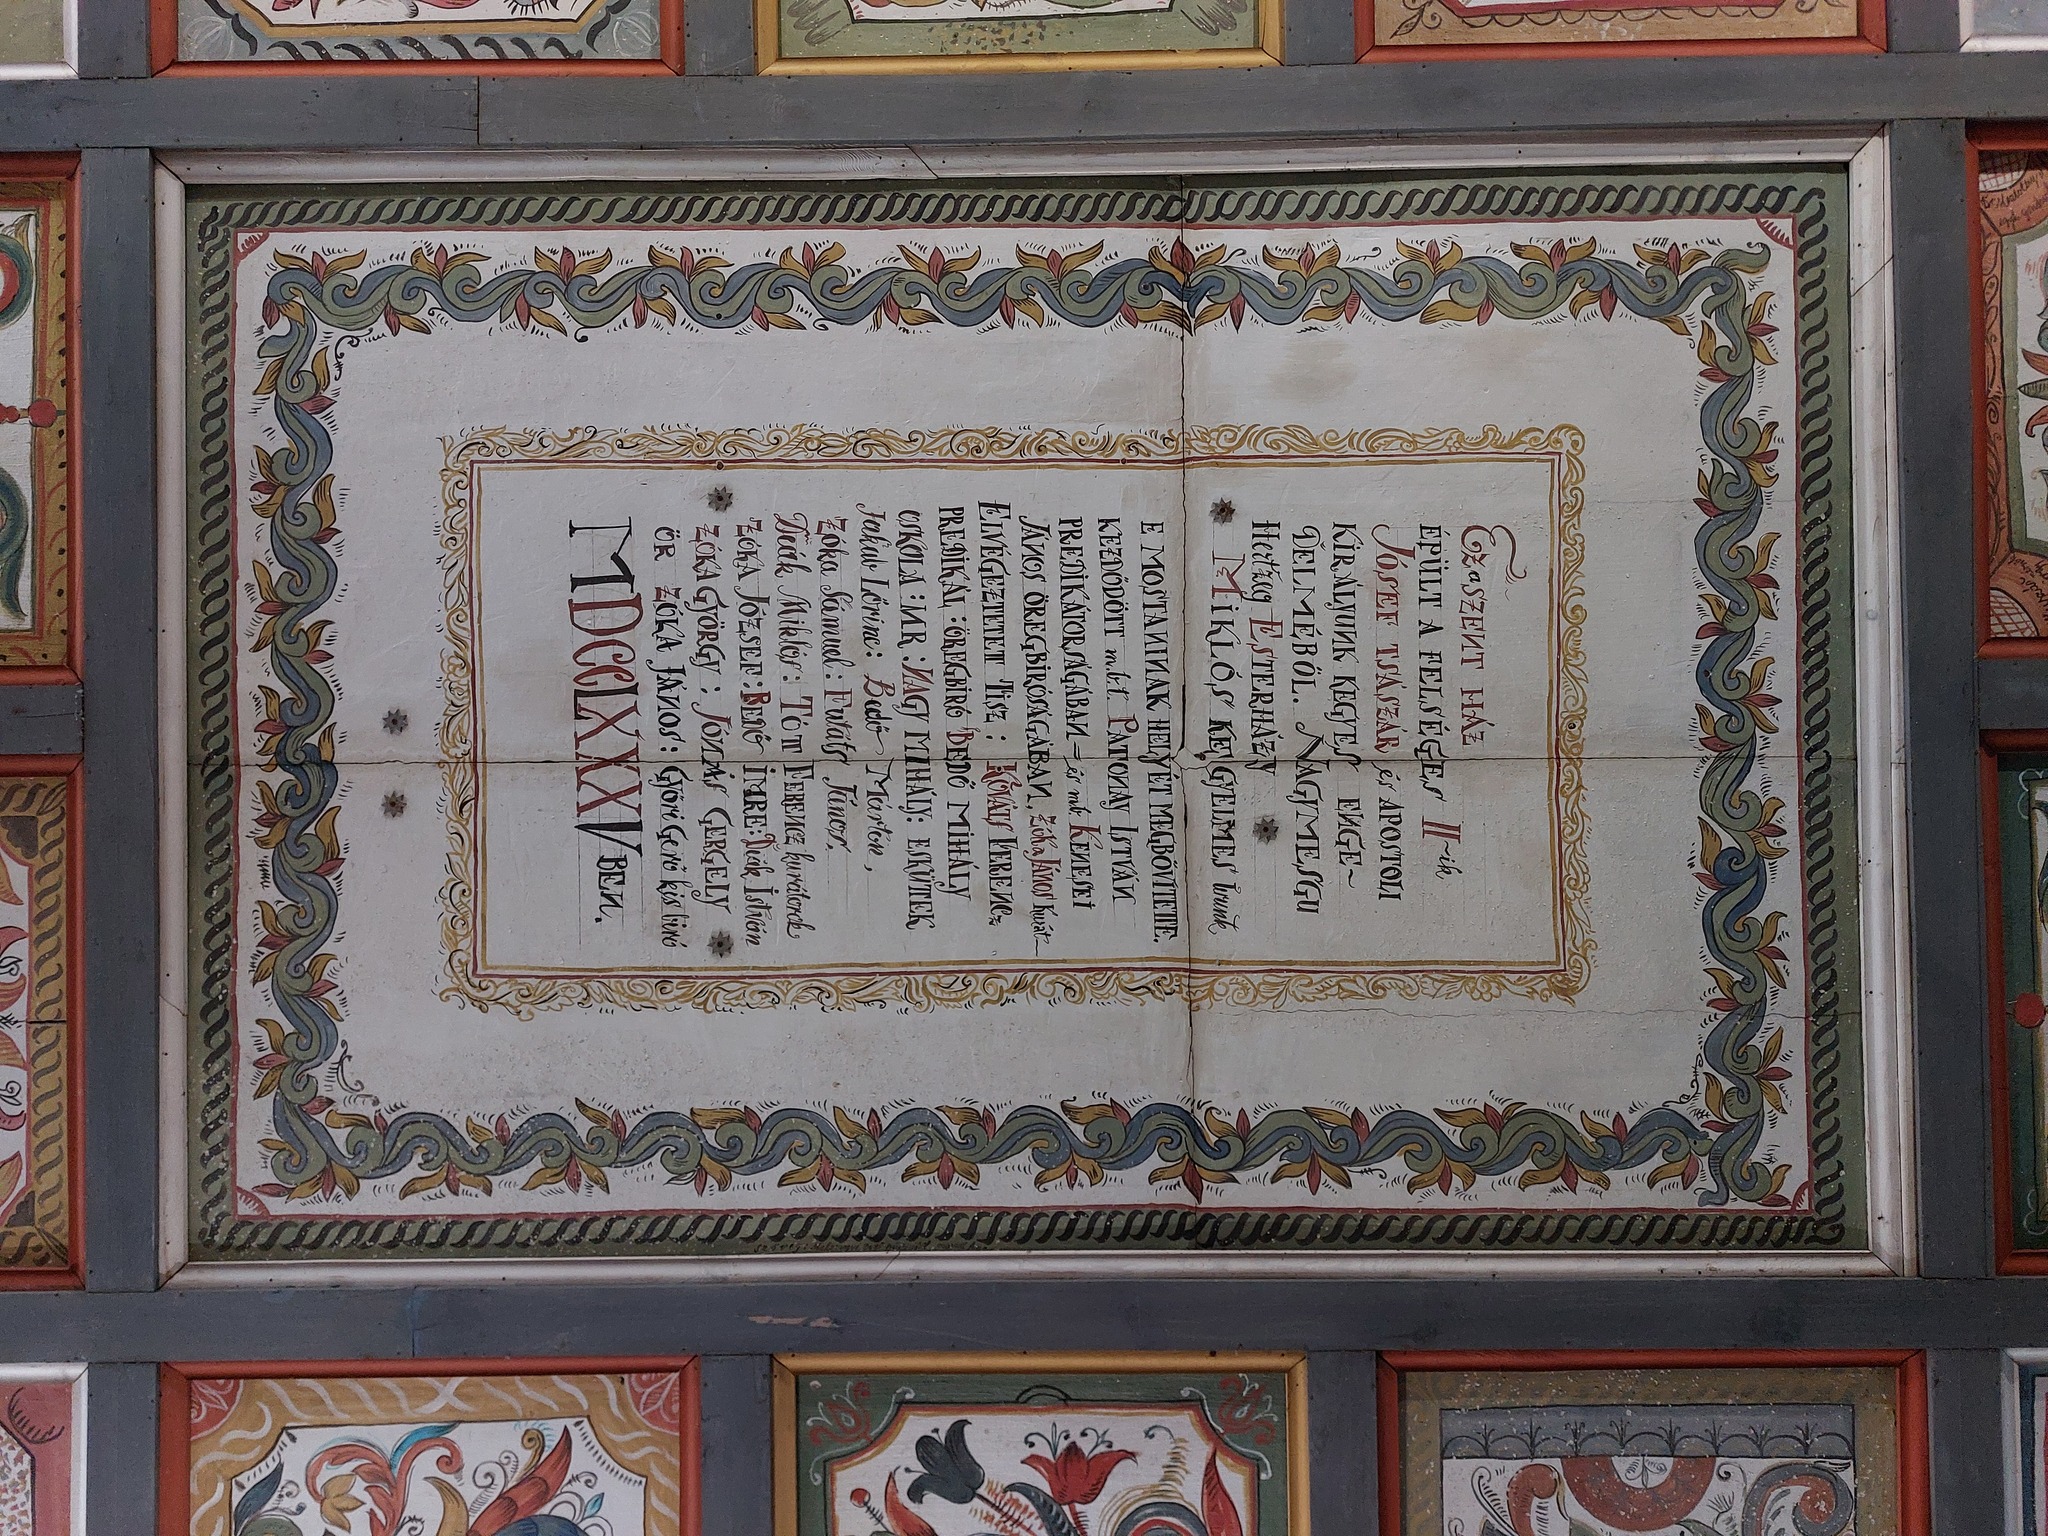 Ez a SZENT HÁZ
ÉPÜLT A FELSÉGES II~ik
JÓSEF TSÁSZÁR és APOSTOLI
KIRÁLYUNK KEGYES ENGE~
DELMÉBŐL. NAGYMLSGU
Hertzeg ESTERHÁZY
MIKLÓS KEGYELMES Urunk
E MOSTANINAK HELYÉT MEGBŐVITETTE.
KEZDŐDÖTT PATONAY ISTVÁN
PREDIKÁTORSÁGÁBAN = és KENESEI
JÁNOS ÖREGBIRÓSÁGÁBAN, ZÓKA JÁNOS Kurát-
ELVÉGEZTETETT TISZ: KOVÁTS FERENCZ
PREDIKÁT: ÖREGBIRÓ BEDŐ MIHÁLY
OSKOLA: MR: NAGY MIHÁLY: ESKÜTEK
Jakab Lőrinc: Bedő Márton,
Zóka Sámuel: Futáts János,
Deák Miklós: TÓTT FERENCZ kurátorok
ZÓKA JÓZSEF: BEDŐ IMRE: Deák István
ZÓKA GYÖRGY: JÓNÁS GERGELY
ÖR ZÓKA JÁNOS: György Gerő kis biró
MDCCLXXXV BEN.